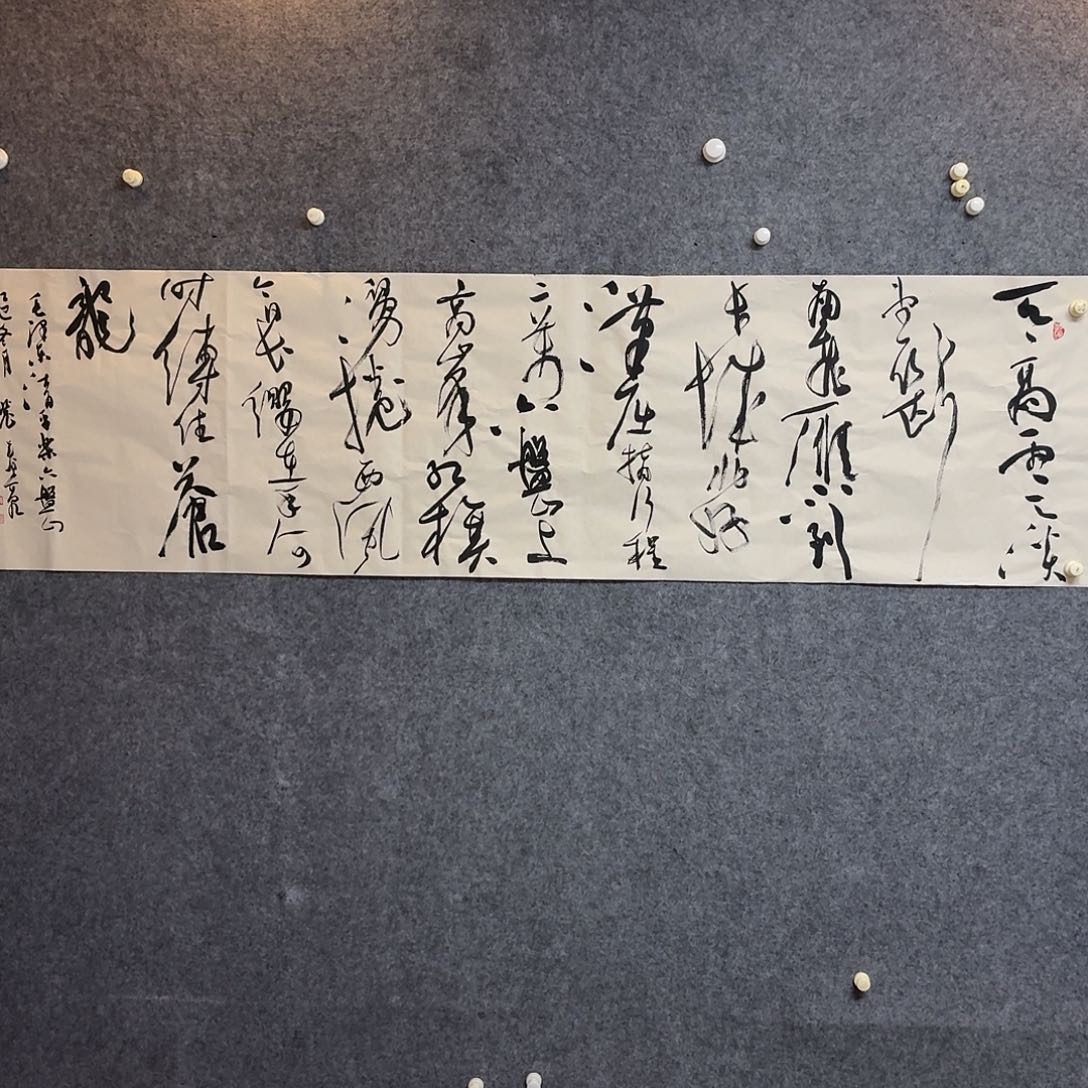 天高雲淡
望斷
南飛雁不到
長城非好
漢屈指行程
二萬六盤山上
高峯紅旗
漫捲西風
今日長纓在手何
時縛住蒼
龍
毛澤東清平樂六盤山
冬月